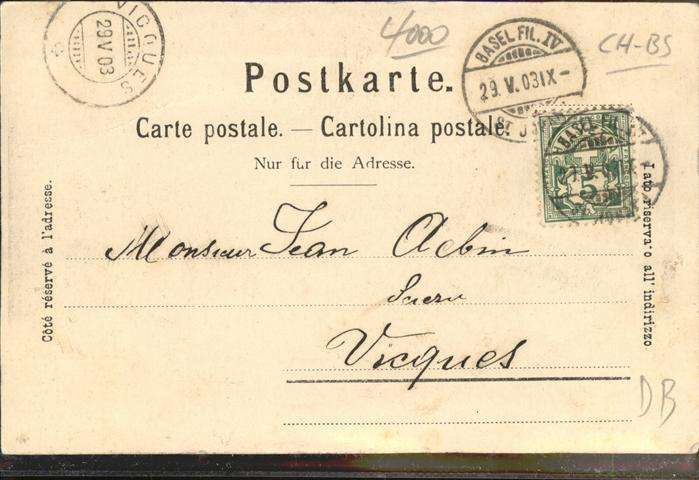 VICQUES
29 V 03
4000
BASEL FIL. IV
29. V. 03 IX-
CH-BS
Postkarte.
Carte postale. — Cartolina postale.
Nur fur die Adresse.
Côté réservé à l'adresse.
Lato riservato all' indirizzo.
Monsieur Jean
Vicques
DB